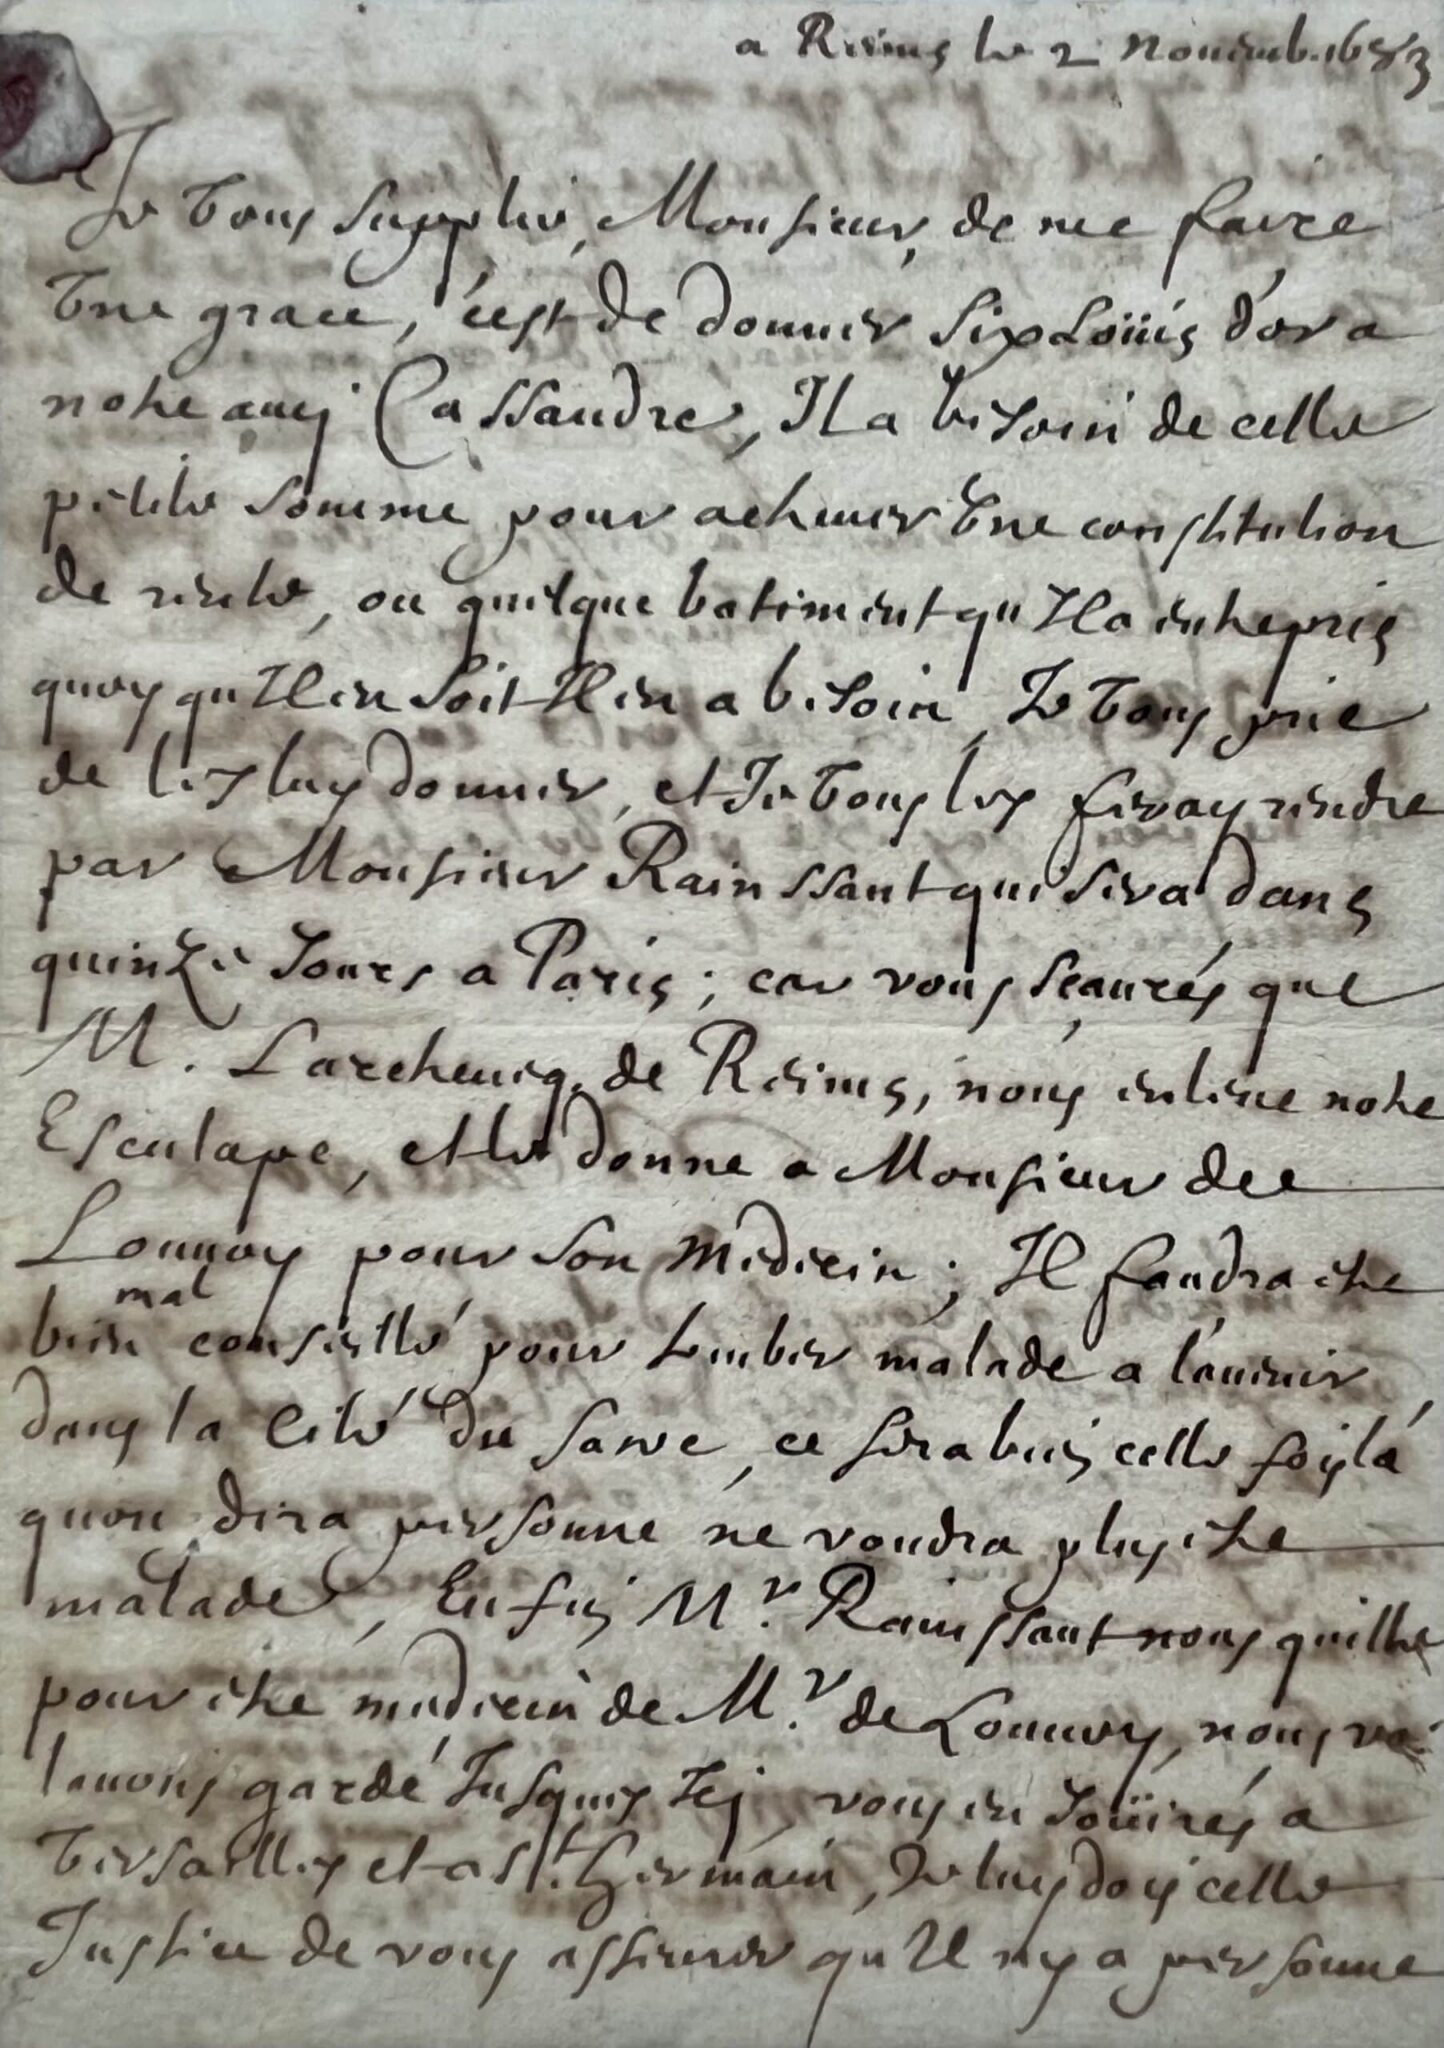 a Reims le 2 Nouemb. 1683
Je vous supplie, Monsieur, de me faire
vne grace, c'est de donner six Loüis d'or a
notre amy Cassandre, Il a besoin de cette
petite somme pour acheuer vne constitution
de rente, ou quelque batiment qu'Il a entrepris
quoy qu'Il en soit Il en a besoin, Je vous prie
de les luy donner, et Je vous les feray rendre
par Monsieur Rainssant qui sera dans
quinze Jours a Paris; car vous sçaurés que
M. Larcheuesq. de Reims, nous enleue notre
Esculape, et le donne a Monsieur de
Louuoy pour son medecin; Il faudra etre
mal
bien conseillé pour tomber malade a l'auenir
dans la Cité du sacre, ce sera bien cette fois la
quon dira personne ne voudra plus etre
malade, Enfin Mr. Rainssant nous quitte
pour etre medecin de Mr. de Louuoy, nous
lauons gardé Jusques Icy, vous en Joüirés a
Versailles et a St. Germain, Je luy dois cette
Justice de vous asseurer qu'Il ny a personne